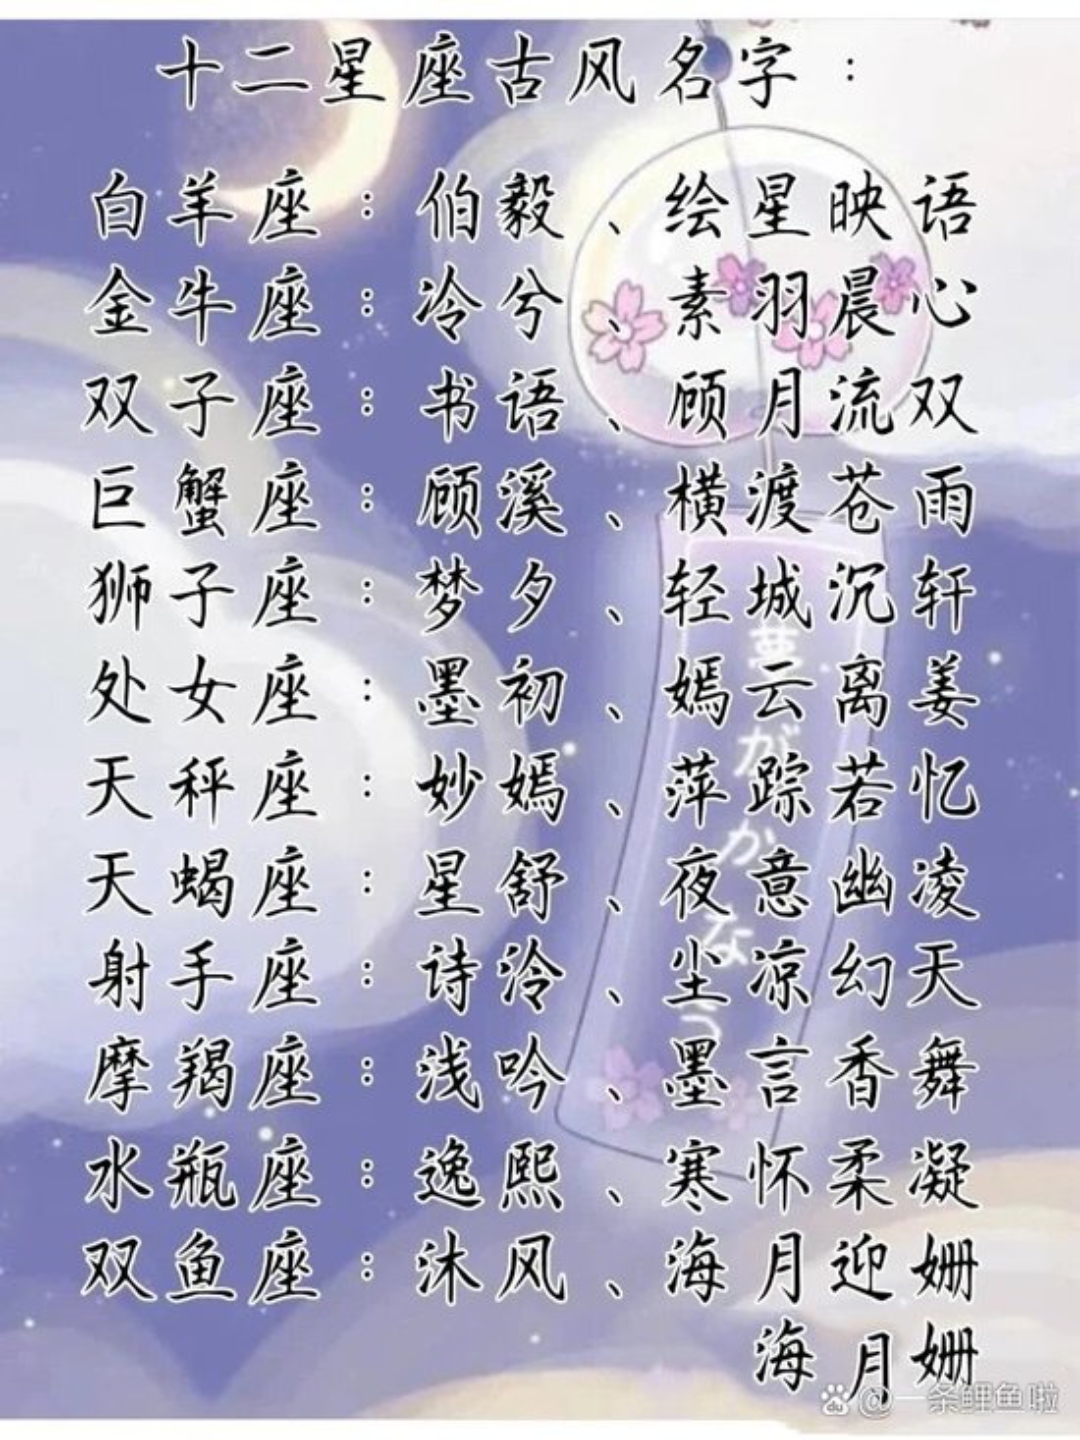 十二星座古风名字：
白羊座：伯毅、绘星映语
金牛座：冷兮、素羽晨心
双子座：书语、顾月流双
巨蟹座：顾溪、横渡苍雨
狮子座：梦夕、轻城沉轩
处女座：墨初、嫣云离姜
天秤座：妙嫣、萍踪若忆
天蝎座：星舒、夜意幽凌
射手座：诗泠、尘凉幻天
摩羯座：浅吟、墨言香舞
水瓶座：逸熙、寒怀柔凝
双鱼座：沐风、海月迎姗
海月姗
夢
が
か
な
う
du @一条鲤鱼啦